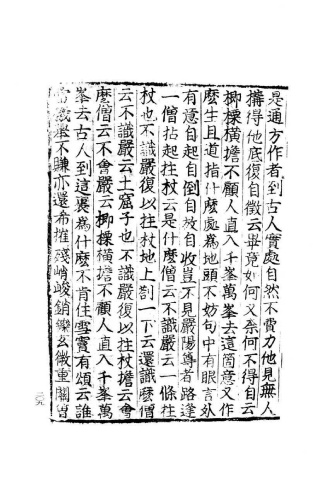 是通方作者到古人實處自然不費力他見無人
搆得他底復自徵云畢竟如何又奈何不得自云
楖樏橫擔不顧人直入千峯萬峯去這箇意又作
麼生且道指什麼處為地頭不妨句中有眼言外
有意自起自倒自放自收豈不見嚴陽尊者路逢
一僧拈起拄杖云是什麼僧云不識嚴云一條拄
杖也不識嚴復以拄杖地上劄一下云還識麼僧
云不識嚴云土窟子也不識嚴復以拄杖擔云會
麼僧云不會嚴云楖樏橫擔不顧人直入千峯萬
峯去古人到這裏為什麼不肯住雪竇有頌云誰
當機舉不賺亦還希摧殘峭峻銷鑠玄微重關曾